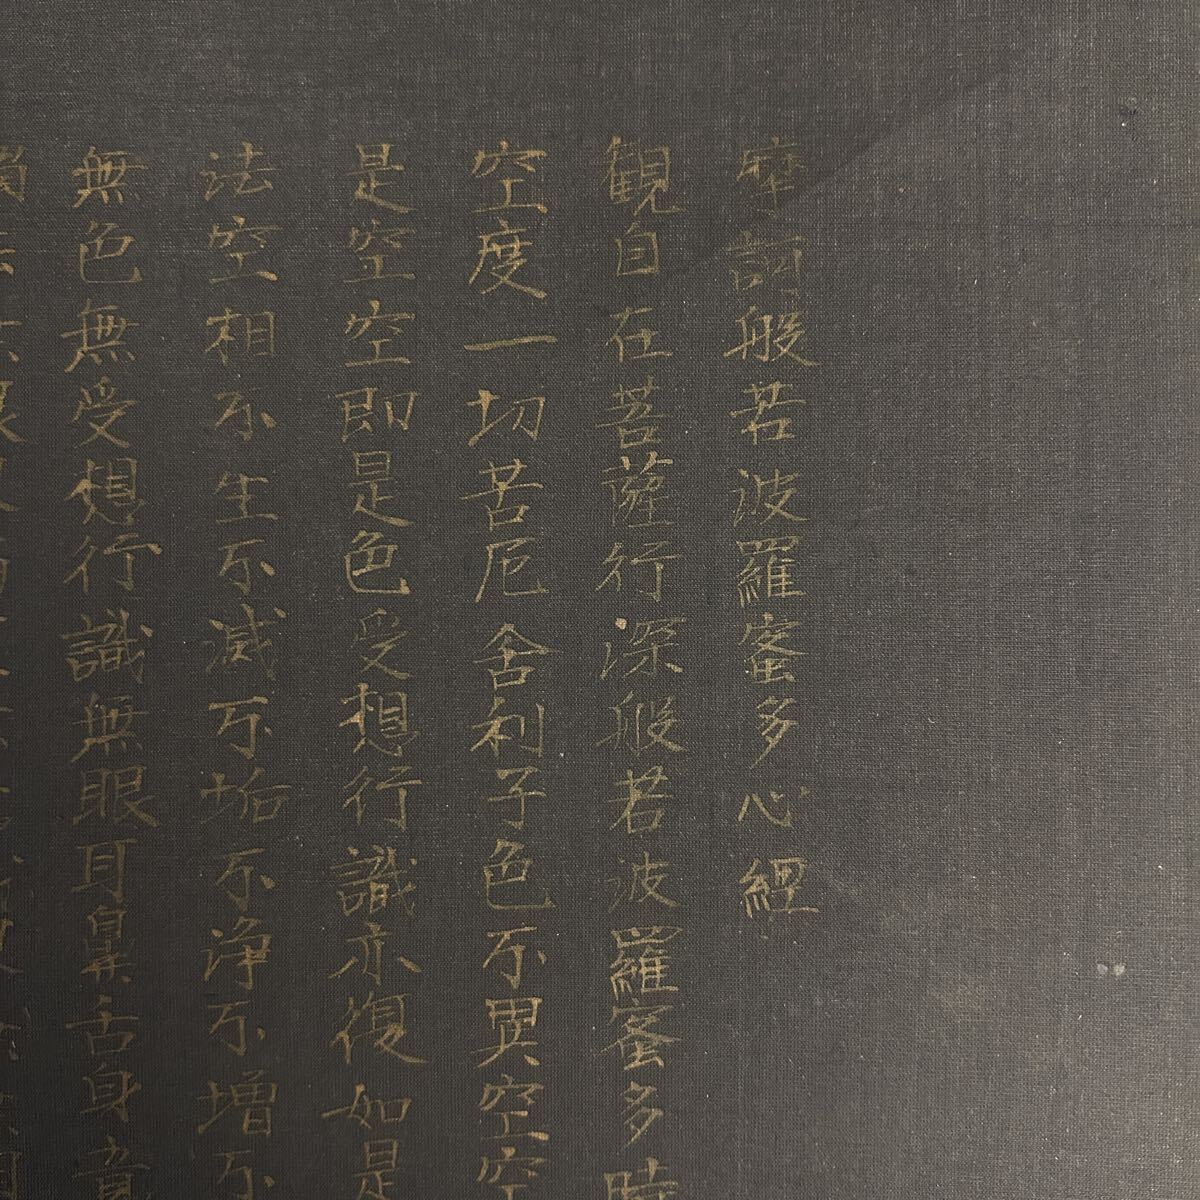 摩訶般若波羅蜜多心經
観自在菩薩行深般若波羅蜜多時
空度一切苦厄舍利子色不異空空
是空空即是色受想行識亦復如是
法空相不生不滅不垢不浄不增不
無色無受想行識無眼耳鼻舌身意